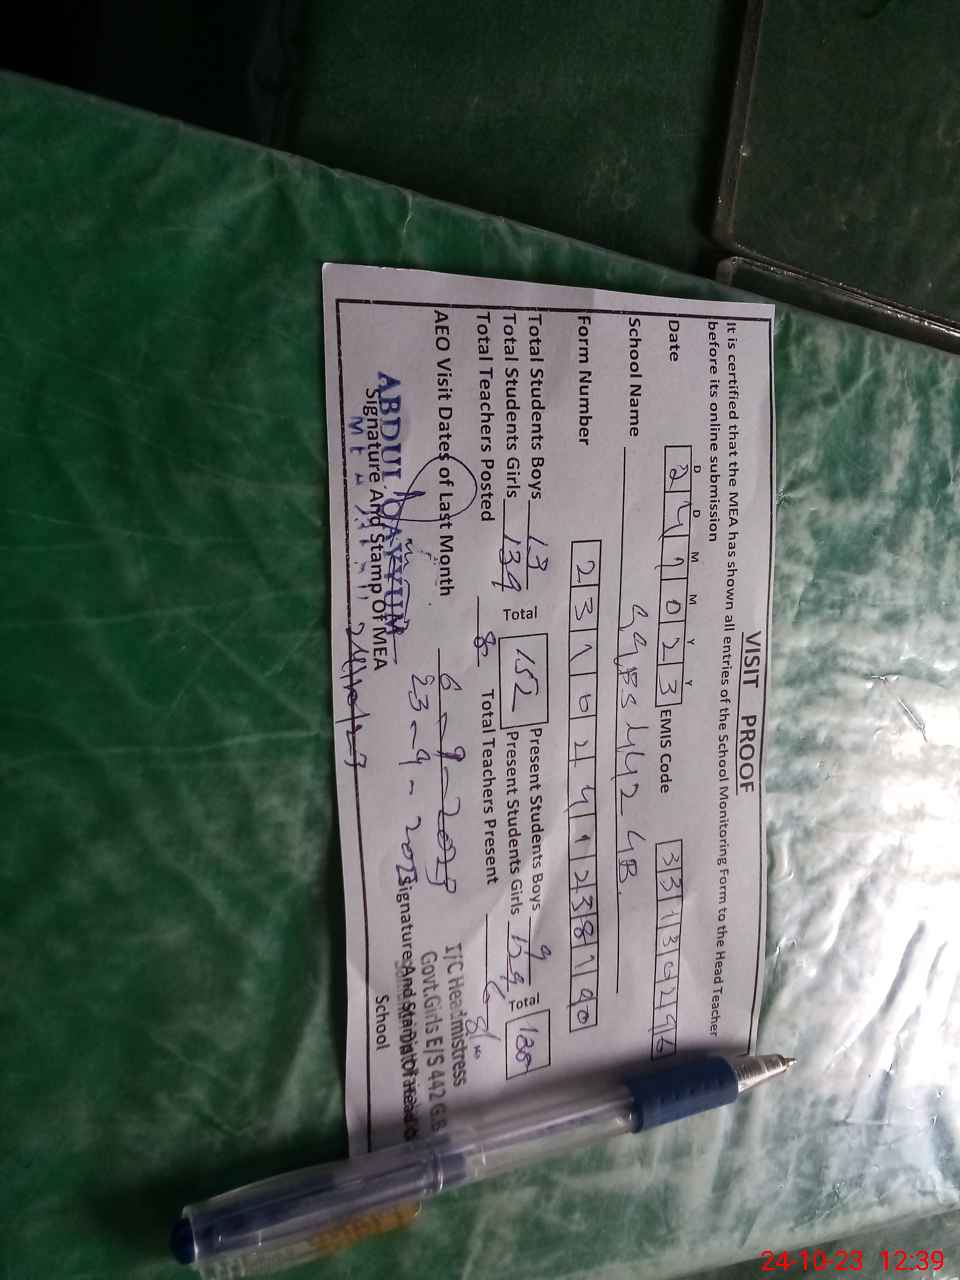 VISIT PROOF
It is certified that the MEA has shown all entries of the School Monitoring Form to the Head Teacher
before its online submission
D D M M Y Y
Date 2 4 1 0 2 3 EMIS Code 3 3 1 3 0 2 9 6
School Name GGES 442-GB
Form Number 2 3 1 0 2 4 1 2 3 8 1 9 0
Total Students Boys 13 Present Students Boys 9
Total Students Girls 139 Total 152 Present Students Girls Total
Total Teachers Posted 8 Total Teachers Present 8
AEO Visit Dates of Last Month 6-9-2023
23-9-2023
ABDUL QAYYUM
Signature And Stamp Of MEA
24/10/23
I/C Headmistress
Govt.Girls E/S 442 G.B
Signature And Stamp Of Head
School
24-10-23 12:39